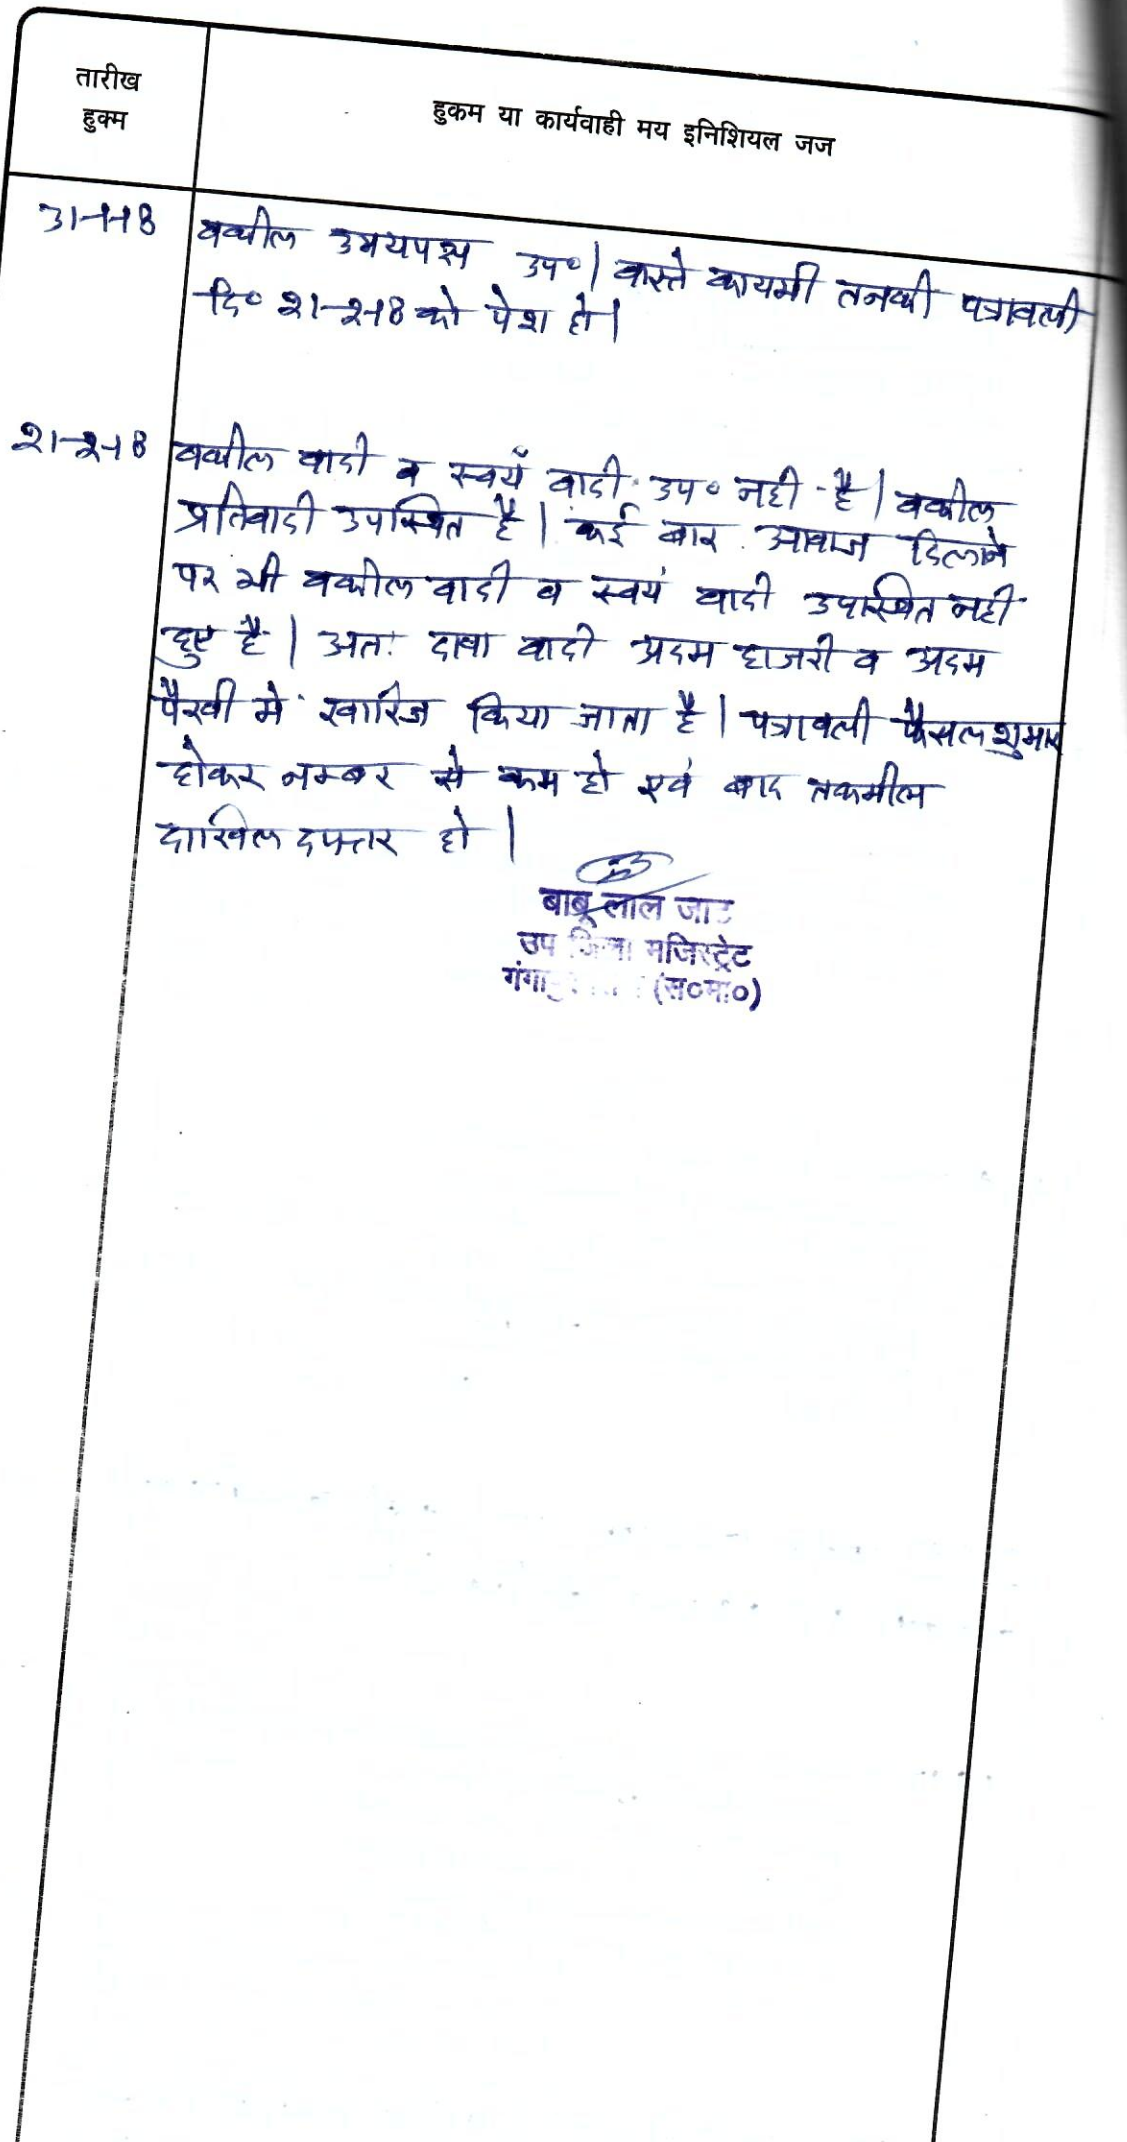 तारीख
हुक्म
हुकम या कार्यवाही मय इनिशियल जज
31-1-18
वकील उभयपक्ष उप०। वास्ते कायमी तनकी पत्रावली
दि० 21-2-18 को पेश हो।
21-2-18
वकील वादी व स्वयं वादी उप० नही है। वकील
प्रतिवादी उपस्थित है। कई बार आवाज दिलाने
पर भी वकील वादी व स्वयं वादी उपस्थित नही
हुए है। अतः दावा वादी अदम हाजरी व अदम
पैरवी मे खारिज किया जाता है। पत्रावली फैसल शुमार
होकर नम्बर से कम हो एवं बाद तकमील
दाखिल दफ्तर हो।
बाबू लाल जाट
उप जिला मजिस्ट्रेट
(स०मा०)